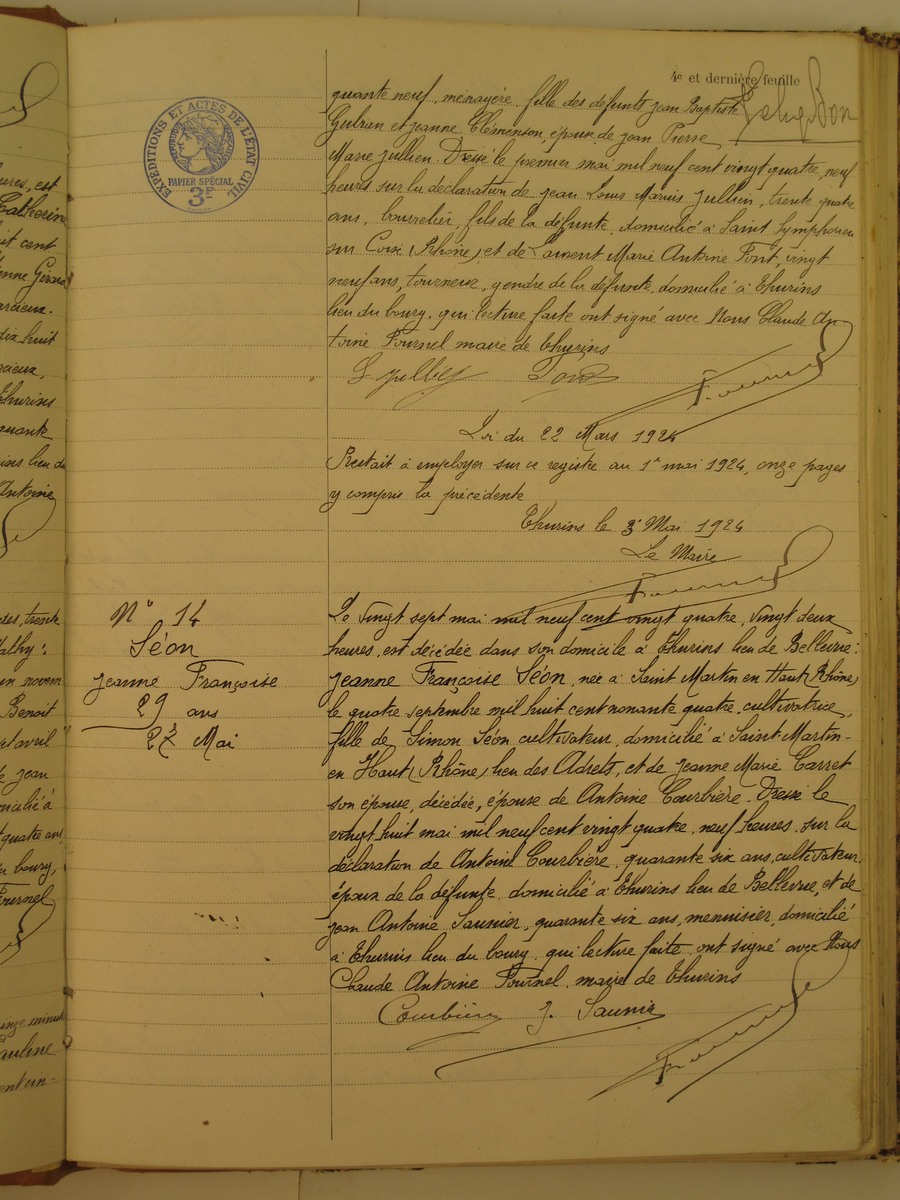 4e et dernière feuille
EXPÉDITIONS ET ACTES DE L'ÉTAT CIVIL
PAPIER SPÉCIAL
3F
quante neuf, ménagère, fille des défunts Jean Baptiste
et Jeanne Clémenson, épouse de Jean Pierre
Marie Jullien. Dressé le premier mai mil neuf cent vingt quatre, neuf
heures, sur la déclaration de Jean Louis Marius Jullien, trente quatre
ans, bourrelier, fils de la défunte, domicilié à Saint Symphorien
sur Coise (Rhône), et de Laurent Marie Antoine Font, vingt
neuf ans, tourneur, gendre de la défunte, domicilié à Thurins
lieu du bourg, qui lecture faite ont signé avec Nous Claude An
toine Fournel maire de Thurins
Loi du 22 Mars 1924
Restait à employer sur ce registre au 1er mai 1924, onze pages
y compris la précédente
Thurins le 3 Mai 1924
Le Maire
N° 14
Séon
Jeanne Françoise
29 ans
27 Mai
Le vingt sept mai mil neuf cent vingt quatre, vingt deux
heures, est décédée dans son domicile à Thurins lieu de Bellevue:
Jeanne Françoise Séon, née à Saint Martin en Haut (Rhône)
le quatre septembre mil huit cent nonante quatre, cultivatrice,
fille de Simon Séon cultivateur, domicilié à Saint Martin-
en Haut (Rhône) lieu des Adrets, et de Jeanne Marie Carret
son épouse, décédée, épouse de Antoine Courbière. Dressé le
vingt huit mai mil neuf cent vingt quatre, neuf heures, sur la
déclaration de Antoine Courbière, quarante six ans, cultivateur,
époux de la défunte, domicilié à Thurins lieu de Bellevue, et de
Jean Antoine Saunier, quarante six ans, menuisier, domicilié
à Thurins lieu du bourg, qui lecture faite, ont signé avec Nous
Claude Antoine Fournel, maire de Thurins
Courbière J. Saunier